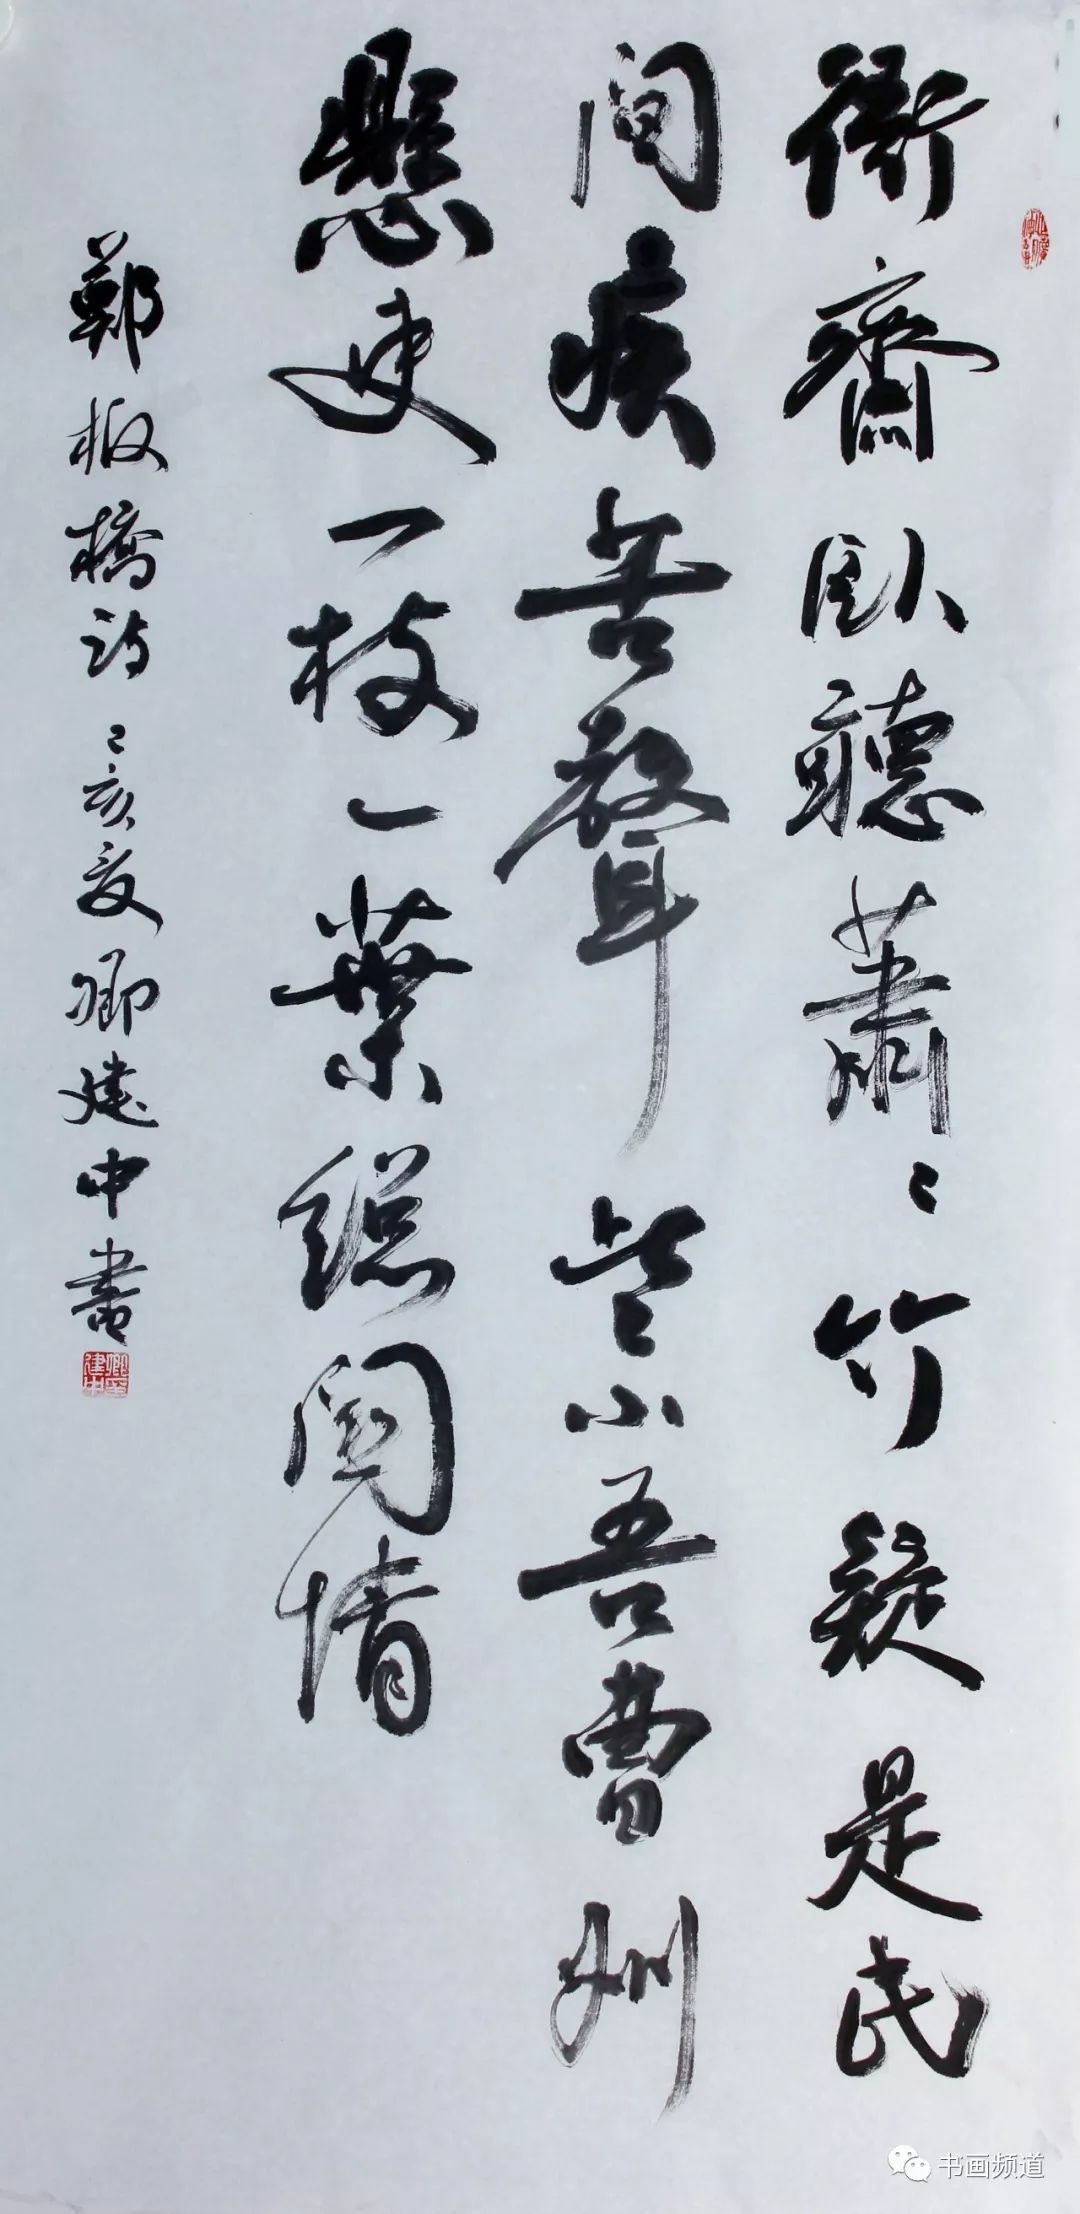 衙齋卧聽蕭〻竹疑是民
間疾苦聲些小吾曹州
縣吏一枝一葉總關情
鄭板橋詩己亥夏卿建中書
卿建中
书画频道